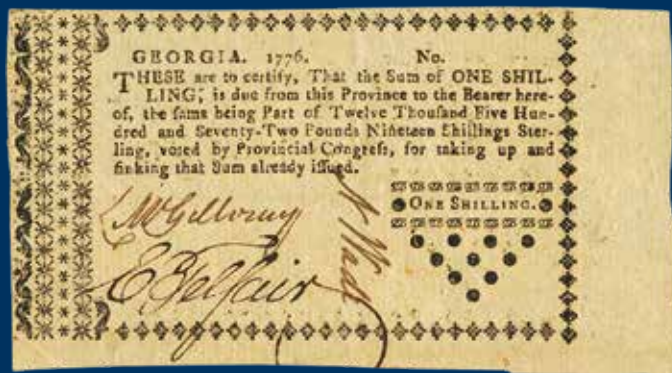 GEORGIA. 1776. No.
THESE are to certify, That the Sum of ONE SHIL-
LING, is due from this Province to the Bearer here-
of, the same being Part of Twelve Thousand Five Hun-
dred and Seventy-Two Pounds Nineteen Shillings Ster-
ling, voted by Provincial Congress, for taking up and
sinking that Sum already issued.
ONE SHILLING.
E Telfair